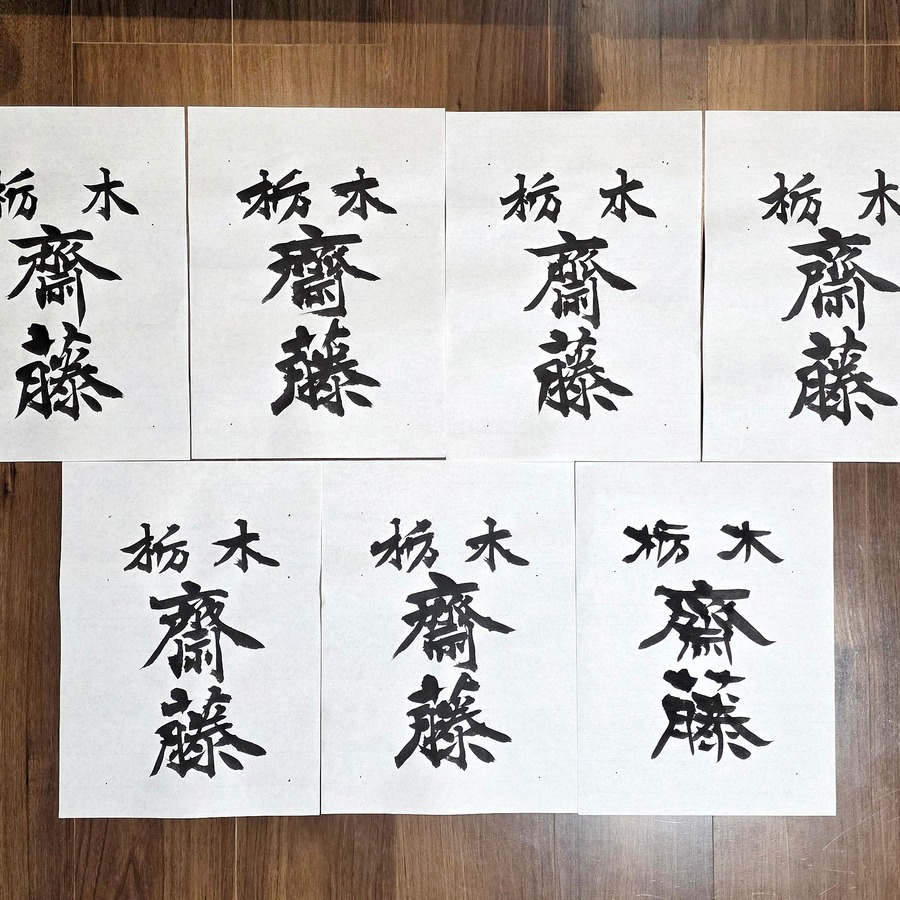 栃木
齋
藤
栃木
齋
藤
栃木
齋
藤
栃木
齋
藤
栃木
齋
藤
栃木
齋
藤
栃木
齋
藤